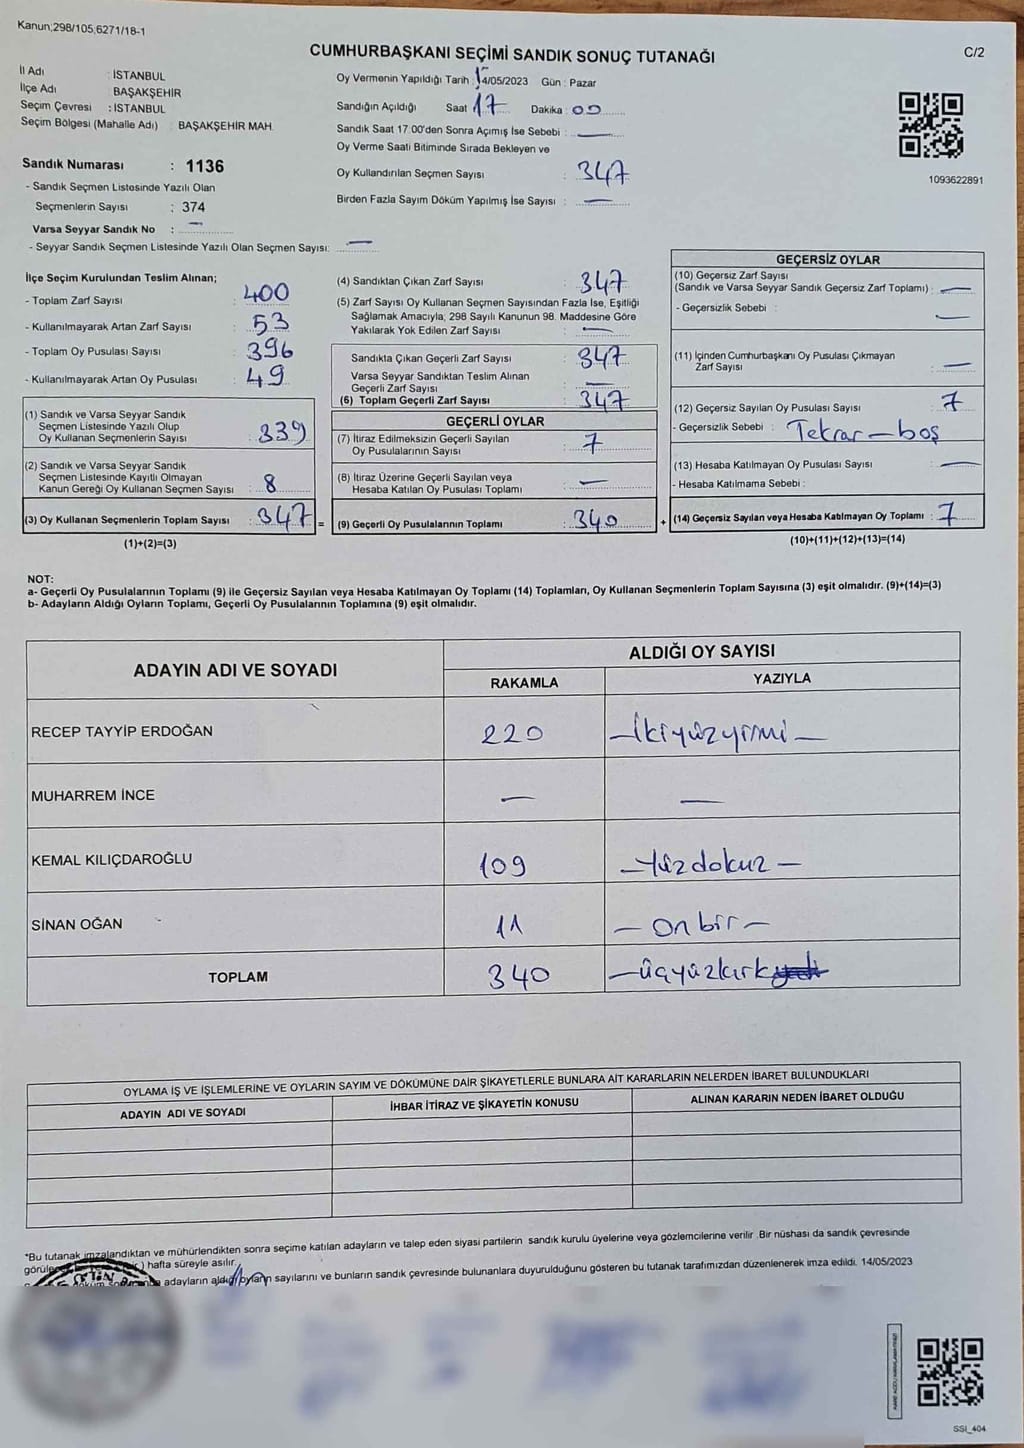 Kanun;298/105;6271/18-1
CUMHURBAŞKANI SEÇİMİ SANDIK SONUÇ TUTANAĞI
C/2
İl Adı : İSTANBUL
İlçe Adı : BAŞAKŞEHİR
Seçim Çevresi : İSTANBUL
Seçim Bölgesi (Mahalle Adı) : BAŞAKŞEHİR MAH.
Sandık Numarası : 1136
- Sandık Seçmen Listesinde Yazılı Olan
Seçmenlerin Sayısı : 374
Varsa Seyyar Sandık No : —
- Seyyar Sandık Seçmen Listesinde Yazılı Olan Seçmen Sayısı: —
Oy Vermenin Yapıldığı Tarih : 14/05/2023 Gün : Pazar
Sandığın Açıldığı Saat 17 Dakika : 00
Sandık Saat 17.00'den Sonra Açımış İse Sebebi : —
Oy Verme Saati Bitiminde Sırada Bekleyen ve
Oy Kullandırılan Seçmen Sayısı : 347
Birden Fazla Sayım Döküm Yapılmış İse Sayısı : —
1093622891
İlçe Seçim Kurulundan Teslim Alınan;
- Toplam Zarf Sayısı : 400
- Kullanılmayarak Artan Zarf Sayısı : 53
- Toplam Oy Pusulası Sayısı : 396
- Kullanılmayarak Artan Oy Pusulası : 49
(1) Sandık ve Varsa Seyyar Sandık
Seçmen Listesinde Yazılı Olup
Oy Kullanan Seçmenlerin Sayısı : 339
(2) Sandık ve Varsa Seyyar Sandık
Seçmen Listesinde Kayıtlı Olmayan
Kanun Gereği Oy Kullanan Seçmen Sayısı : 8
(3) Oy Kullanan Seçmenlerin Toplam Sayısı : 347 =
(1)+(2)=(3)
(4) Sandıktan Çıkan Zarf Sayısı : 347
(5) Zarf Sayısı Oy Kullanan Seçmen Sayısından Fazla İse, Eşitliği
Sağlamak Amacıyla; 298 Sayılı Kanunun 98. Maddesine Göre
Yakılarak Yok Edilen Zarf Sayısı : —
Sandıkta Çıkan Geçerli Zarf Sayısı : 347
Varsa Seyyar Sandıktan Teslim Alınan
Geçerli Zarf Sayısı : —
(6) Toplam Geçerli Zarf Sayısı : 347
GEÇERLİ OYLAR
(7) İtiraz Edilmeksizin Geçerli Sayılan
Oy Pusulalarının Sayısı : 7
(8) İtiraz Üzerine Geçerli Sayılan veya
Hesaba Katılan Oy Pusulası Toplamı : —
(9) Geçerli Oy Pusulalarının Toplamı : 340 +
GEÇERSİZ OYLAR
(10) Geçersiz Zarf Sayısı
(Sandık ve Varsa Seyyar Sandık Geçersiz Zarf Toplamı) : —
- Geçersizlik Sebebi : —
(11) İçinden Cumhurbaşkanı Oy Pusulası Çıkmayan
Zarf Sayısı : —
(12) Geçersiz Sayılan Oy Pusulası Sayısı : 7
- Geçersizlik Sebebi : Tekrar – boş
(13) Hesaba Katılmayan Oy Pusulası Sayısı : —
- Hesaba Katılmama Sebebi :
(14) Geçersiz Sayılan veya Hesaba Katılmayan Oy Toplamı : 7
(10)+(11)+(12)+(13)=(14)
NOT:
a- Geçerli Oy Pusulalarının Toplamı (9) ile Geçersiz Sayılan veya Hesaba Katılmayan Oy Toplamı (14) Toplamları, Oy Kullanan Seçmenlerin Toplam Sayısına (3) eşit olmalıdır. (9)+(14)=(3)
b- Adayların Aldığı Oyların Toplamı, Geçerli Oy Pusulalarının Toplamına (9) eşit olmalıdır.
ADAYIN ADI VE SOYADI
ALDIĞI OY SAYISI
RAKAMLA YAZIYLA
RECEP TAYYİP ERDOĞAN 220 – İkiyüzyirmi –
MUHARREM İNCE — —
KEMAL KILIÇDAROĞLU 109 – Yüzdokuz –
SİNAN OĞAN 11 – Onbir –
TOPLAM 340 – üçyüzkırk
OYLAMA İŞ VE İŞLEMLERİNE VE OYLARIN SAYIM VE DÖKÜMÜNE DAİR ŞİKAYETLERLE BUNLARA AİT KARARLARIN NELERDEN İBARET BULUNDUKLARI
ADAYIN ADI VE SOYADI İHBAR İTİRAZ VE ŞİKAYETİN KONUSU ALINAN KARARIN NEDEN İBARET OLDUĞU
*Bu tutanak imzalandıktan ve mühürlendikten sonra seçime katılan adayların ve talep eden siyasi partilerin sandık kurulu üyelerine veya gözlemcilerine verilir .Bir nüshası da sandık çevresinde
) hafta süreyle asılır.
adayların aldığı oyların sayılarını ve bunların sandık çevresinde bulunanlara duyurulduğunu gösteren bu tutanak tarafımızdan düzenlenerek imza edildi. 14/05/2023
SSI_404